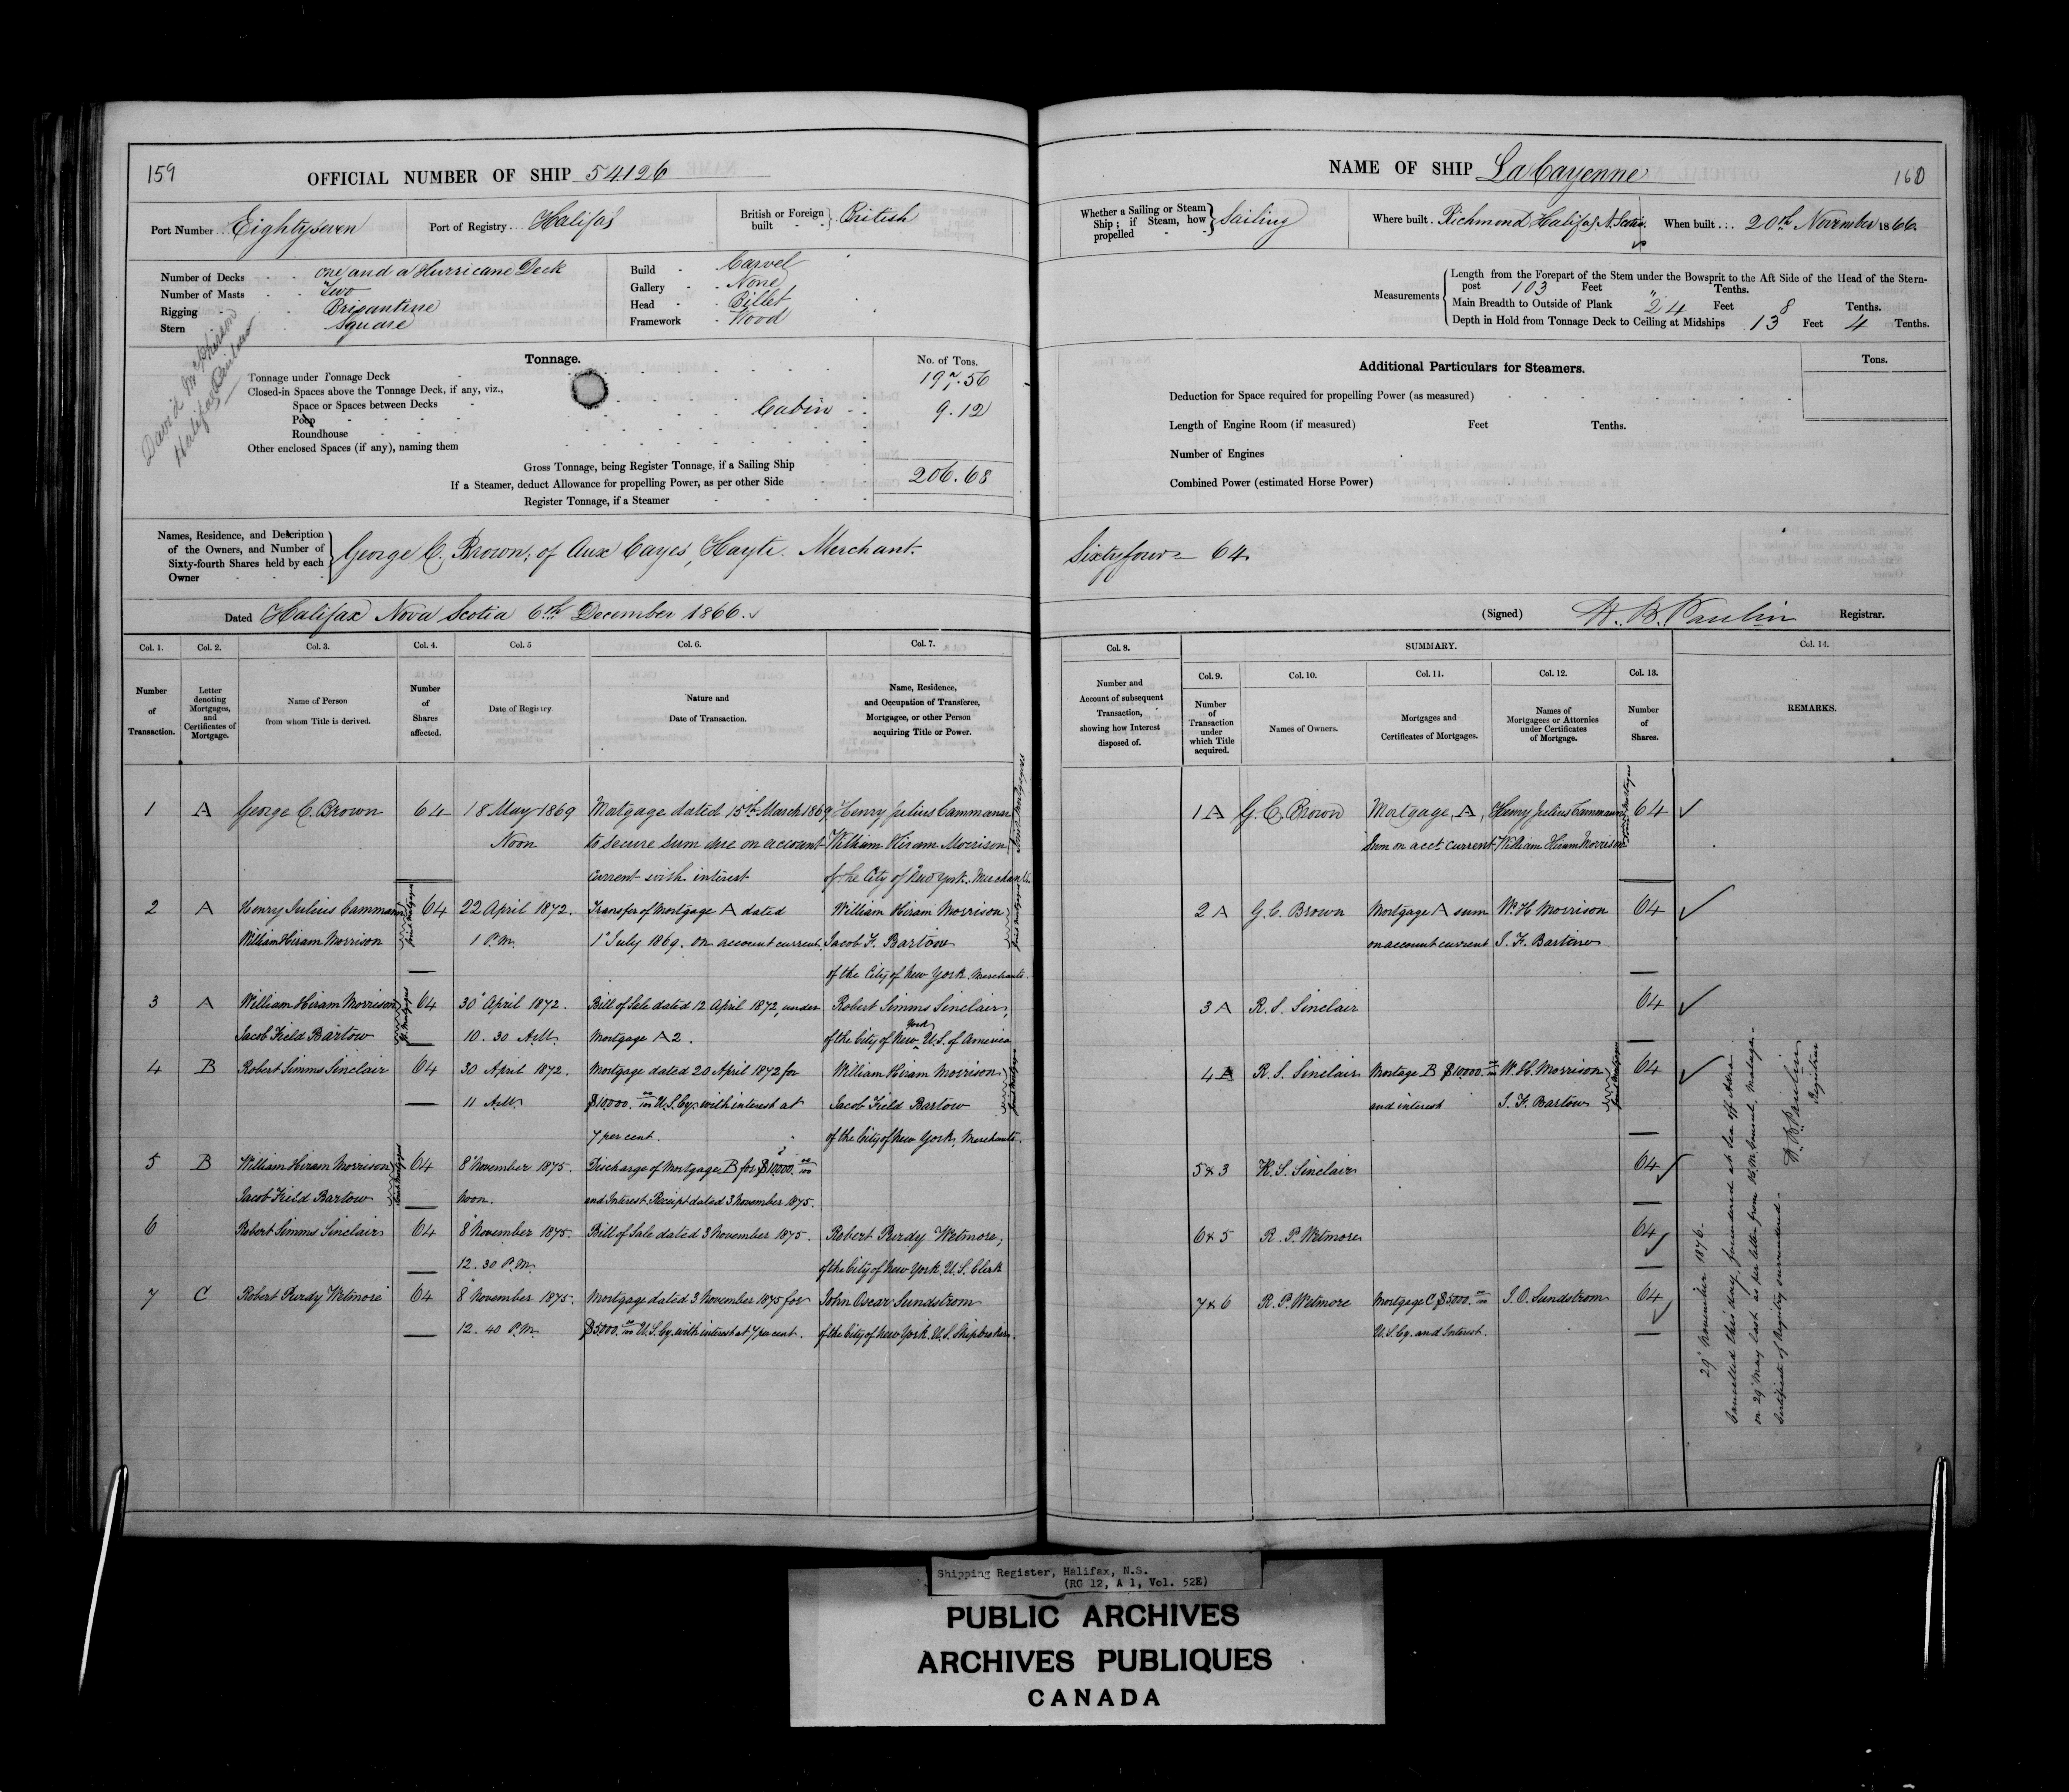 159
OFFICIAL NUMBER OF SHIP 54126
Port Number Eightyseven
Port of Registry Halifax
British or Foreign built British
Number of Decks one and a Hurricane Deck
Number of Masts Two
Rigging Brigantine
Stern Square
Build Carvel
Gallery None
Head Billet
Framework Wood
Tonnage.
No. of Tons.
Tonnage under Tonnage Deck 197.56
Closed-in Spaces above the Tonnage Deck, if any, viz.,
Space or Spaces between Decks Cabin 9.12
Poop
Roundhouse
Other enclosed Spaces (if any), naming them
Gross Tonnage, being Register Tonnage, if a Sailing Ship 206.68
If a Steamer, deduct Allowance for propelling Power, as per other Side
Register Tonnage, if a Steamer
Names, Residence, and Description
of the Owners, and Number of
Sixty-fourth Shares held by each
Owner
George C. Brown, of Aux Cayes, Hayti. Merchant.
Dated Halifax Nova Scotia 6th December 1866.
Col. 1.
Number
of
Transaction.
Col. 2.
Letter
denoting
Mortgages,
and
Certificates of
Mortgage.
Col. 3.
Name of Person
from whom Title is derived.
Col. 4.
Number
of
Shares
affected.
Col. 5
Date of Registry
Col. 6.
Nature and
Date of Transaction.
Col. 7.
Name, Residence,
and Occupation of Transferee,
Mortgagee, or other Person
acquiring Title or Power.
1 A George C. Brown 64 18 May 1869 Mortgage dated 15th March 1869 Henry Julius Cammann
Noon to secure sum due on account William Hiram Morrison
current with interest of the City of New York. Merchants
Joint Mortgagees
2 A Henry Julius Cammann 64 22 April 1872. Transfer of Mortgage A dated William Hiram Morrison
William Hiram Morrison 1 P.M. 1st July 1869. on account current. Jacob F. Bartow
of the City of New York. Merchants.
Joint Mortgagees
3 A William Hiram Morrison 64 30 April 1872. Bill of Sale dated 12 April 1872, under Robert Simms Sinclair,
Jacob Field Bartow 10. 30 A.M. Mortgage A 2. of the City of New York U.S. of America
4 B Robert Simms Sinclair 64 30 April 1872. Mortgage dated 20 April 1872 for William Hiram Morrison
11 A.M. $10,000. 00/100 U.S. Cy. with interest at Jacob Field Bartow
7 per cent. of the City of New York, Merchants.
5 B William Hiram Morrison 64 8 November 1875. Discharge of Mortgage B for $10,000. 00/100
Jacob Field Bartow Noon. and Interest Receipt dated 3 November 1875.
6 Robert Simms Sinclair 64 8 November 1875. Bill of Sale dated 3 November 1875. Robert Purdy Wetmore,
12. 30 P.M. of the City of New York. U.S. Clerk
7 C Robert Purdy Wetmore 64 8 November 1875. Mortgage dated 3 November 1875 for John Oscar Sundstrom
12. 40 P.M. $5000. 00/100 U.S. Cy. with interest at 7 per cent. of the City of New York. U.S. Shipbroker.
NAME OF SHIP La Cayenne
160
Whether a Sailing or Steam
Ship; if Steam, how
propelled
Sailing
Where built Richmond Halifax N. Scotia.
When built 20th November 1866.
Measurements
Length from the Forepart of the Stem under the Bowsprit to the Aft Side of the Head of the Stern-
post 103 Feet " Tenths.
Main Breadth to Outside of Plank 24 Feet 8 Tenths.
Depth in Hold from Tonnage Deck to Ceiling at Midships 13 Feet 4 Tenths.
Additional Particulars for Steamers.
Tons.
Deduction for Space required for propelling Power (as measured)
Length of Engine Room (if measured) Feet Tenths.
Number of Engines
Combined Power (estimated Horse Power)
Sixtyfour 64
(Signed) H. B. Paulin Registrar.
Col. 8.
Number and
Account of subsequent
Transaction,
showing how Interest
disposed of.
SUMMARY.
Col. 9.
Number
of
Transaction
under
which Title
acquired.
Col. 10.
Names of Owners.
Col. 11.
Mortgages and
Certificates of Mortgages.
Col. 12.
Names of
Mortgagees or Attornies
under Certificates
of Mortgage.
Col. 13.
Number
of
Shares.
Col. 14.
REMARKS.
1 A G. C. Brown Mortgage, A, Henry Julius Cammann 64
Sum on acct current William Hiram Morrison
Joint Mortgagees
2 A G. C. Brown Mortgage A sum W. H. Morrison 64
on account current J. F. Bartow
3 A R. S. Sinclair 64
4 B R. S. Sinclair Mortgage B $10,000. 00/100 W. H. Morrison 64
and interest J. F. Bartow
5 & 3 R. S. Sinclair 64
6 & 5 R. P. Wetmore 64
7 & 6 R. P. Wetmore Mortgage C $5000. 00/100 J. O. Sundstrom 64
U.S. Cy. and Interest.
29 November 1876.
Cancelled this day, foundered at Sea off
on 29 May last as per letter from
Certificate of Registry surrendered.
H. B. Paulin
Registrar
Shipping Register, Halifax, N.S.
(RG 12, A 1, Vol. 52E)
PUBLIC ARCHIVES
ARCHIVES PUBLIQUES
CANADA